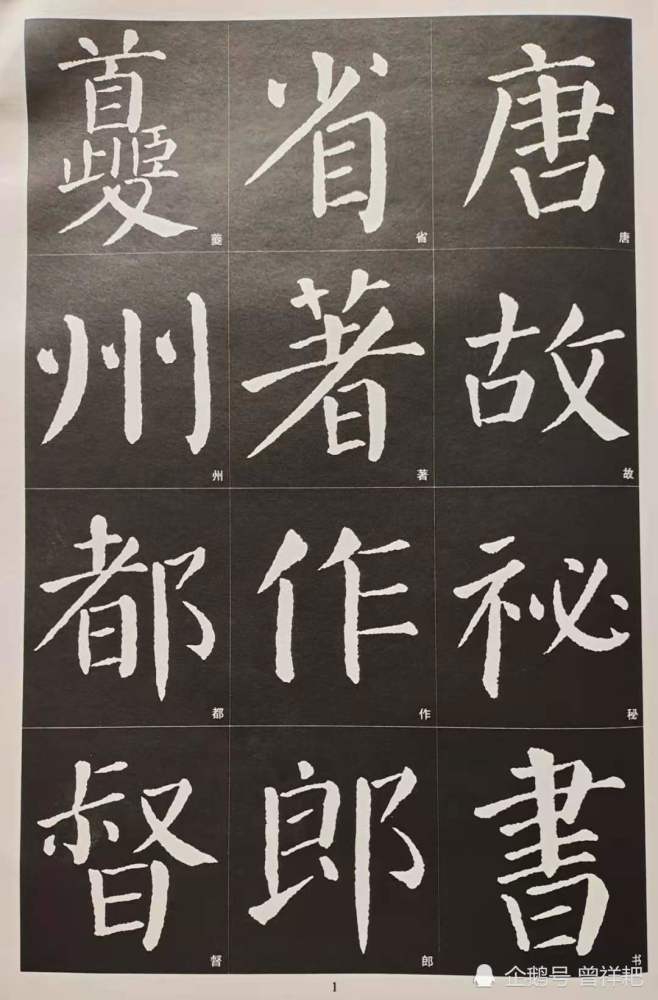 唐故祕書
唐
故
秘
书
省著作郎
省
著
作
郎
夔州都督
夔
州
都
督
1
企鹅号 曾祥耙